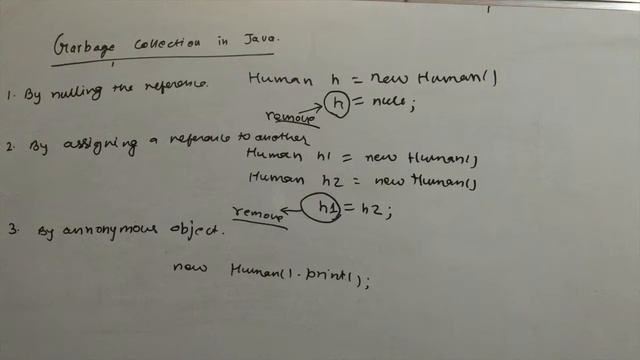 Garbage collection in Java.
1. By nulling the reference.
Human h = new Human()
h = null;
remove
2. By assigning a reference to another
Human h1 = new Human()
Human h2 = new Human()
h1 = h2;
remove
3. By annonymous object.
new Human().print();